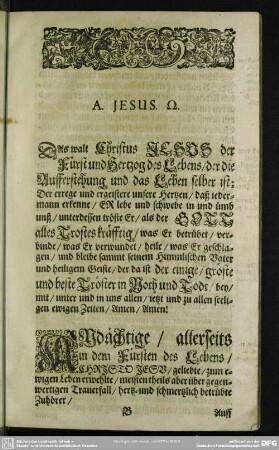 A. JESUS. Ω.
DAs walt Christus JESUS der
Fürst und Hertzog des Lebens/ der die
Aufferstehung und das Leben selber ist:
Der errege und ergeistere unsere Hertzen/ daß ieder-
mann erkenne/ ER lebe und schwebe in und ümb
unß/ unterdessen tröste Er/ als der GOTT
alles Trostes kräfftig/ was Er betrübet/ ver-
binde/ was Er verwundet/ heile/ was Er geschla-
gen/ und bleibe sammt seinem Himmlischen Vater
und heiligem Geiste/ der da ist der einige/ gröste
und beste Tröster in Noth und Todt/ bey/
mit/ unter und in uns allen/ ietzt und zu allen seeli-
gen ewigen Zeiten/ Amen/ Amen!
ANdächtige/ allerseits
in dem Fürsten des Lebens/
CHRISTO JESU/ geliebte/ zum e-
wigen Leben erwehlte/ meistentheils aber über gegen-
wertigen Trauerfall/ hertz- und schmertzlich betrübte
Zuhörer/
B
Auff